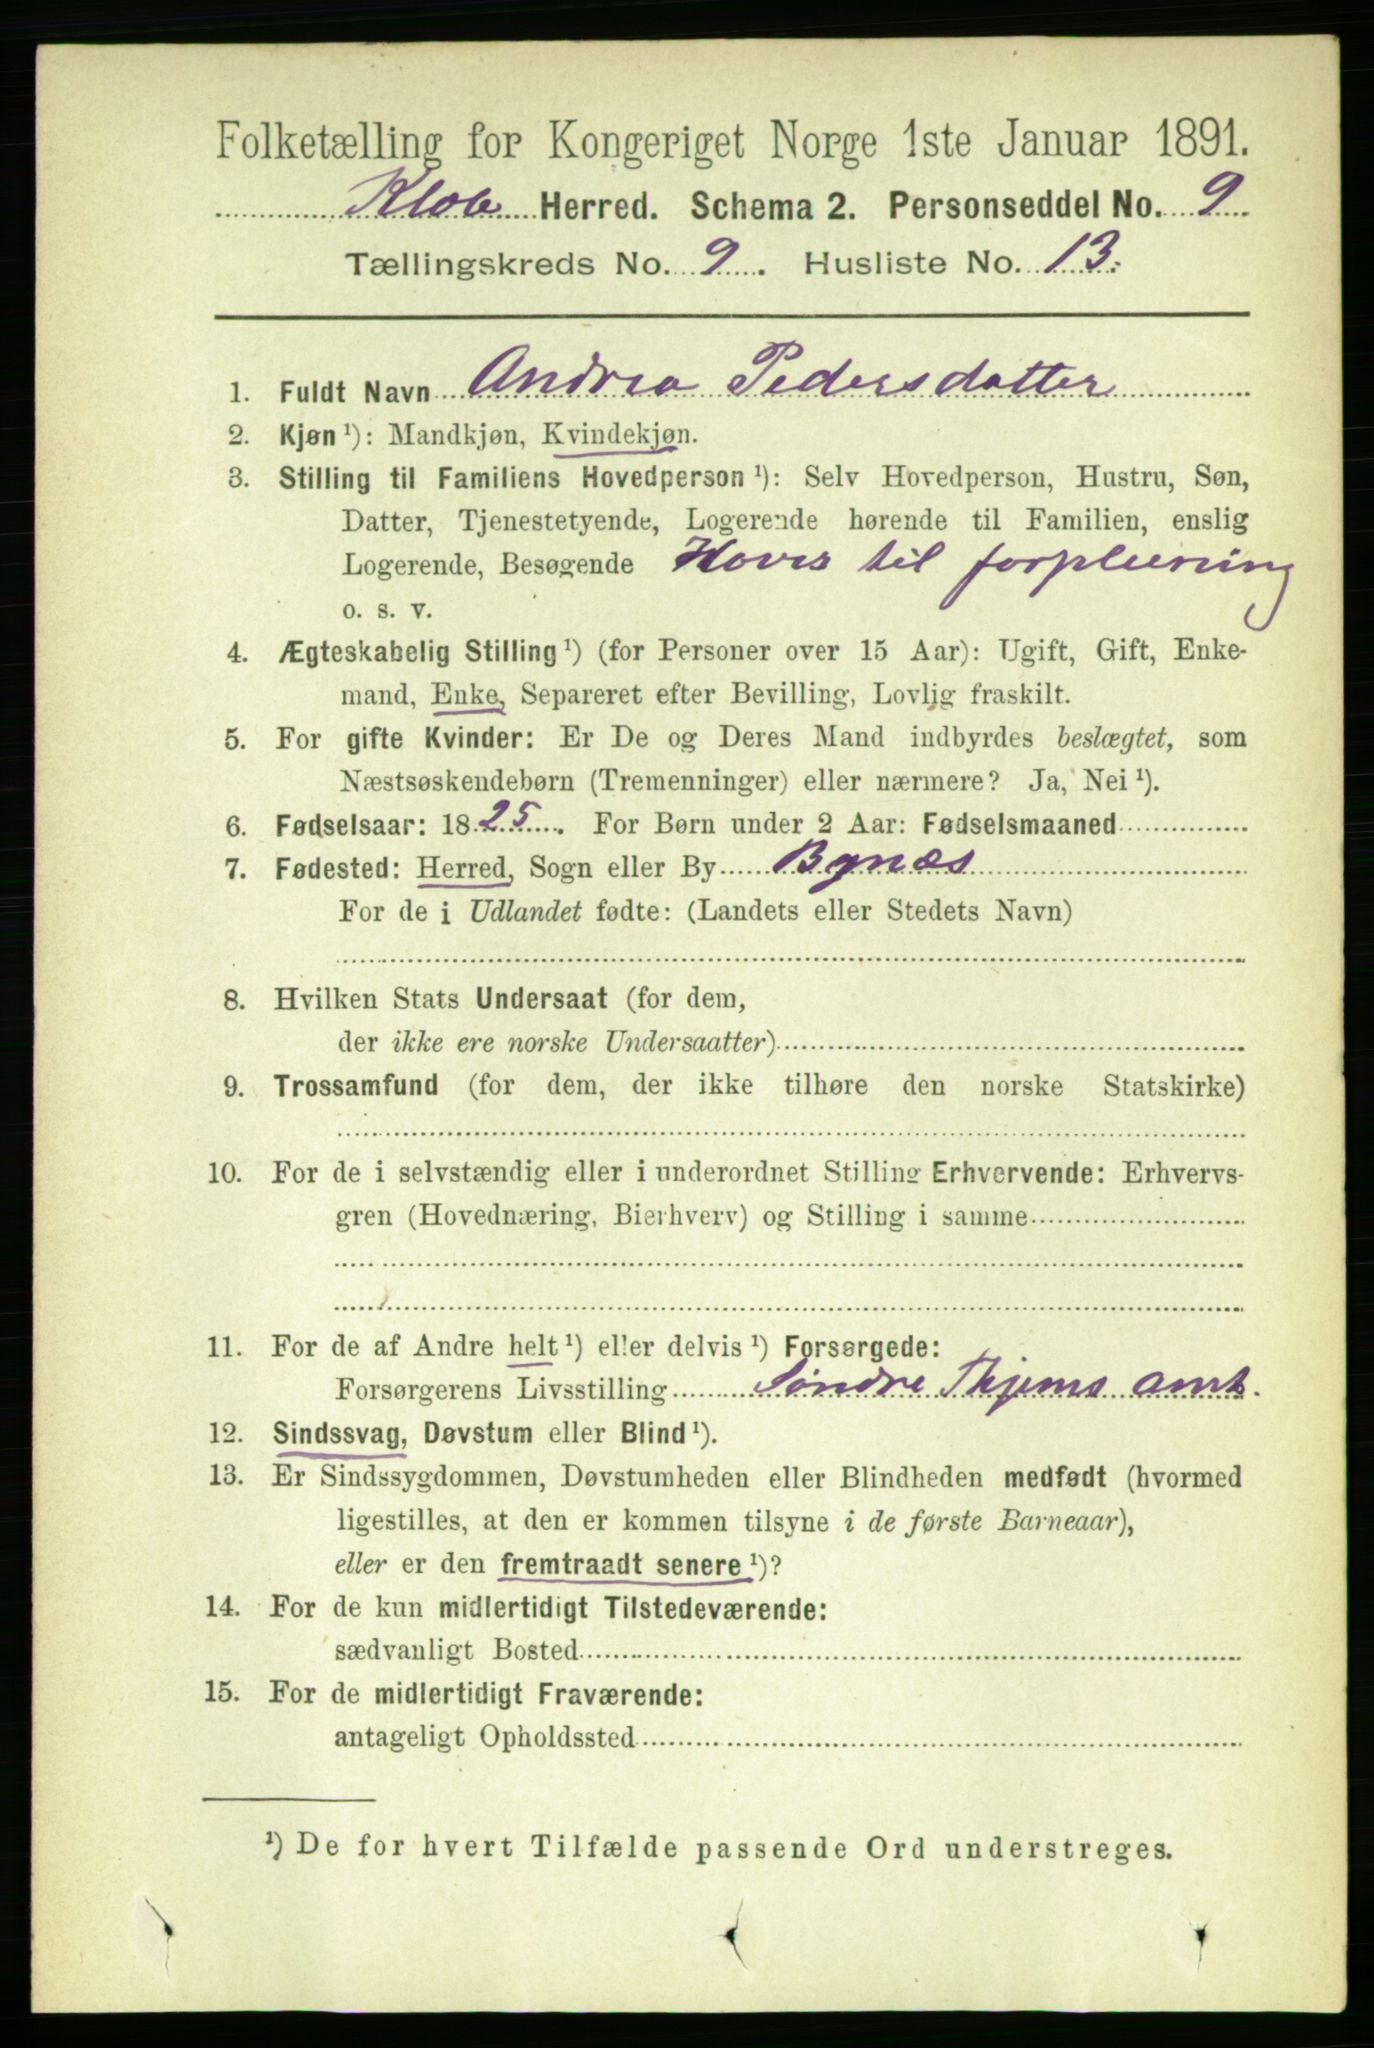 Folketælling for Kongeriget Norge 1ste Januar 1891.
Klæbu Herred. Schema 2. Personseddel No. 9
Tællingskreds No. 9. Husliste No. 13.
1. Fuldt Navn Andrea Pedersdatter
2. Kjøn ¹): Mandkjøn, Kvindekjøn.
3. Stilling til Familiens Hovedperson ¹): Selv Hovedperson, Hustru, Søn,
Datter, Tjenestetyende, Logerende hørende til Familien, enslig
Logerende, Besøgende Haves til forpleining
o. s. v.
4. Ægteskabelig Stilling ¹) (for Personer over 15 Aar): Ugift, Gift, Enke-
mand, Enke, Separeret efter Bevilling, Lovlig fraskilt.
5. For gifte Kvinder: Er De og Deres Mand indbyrdes beslægtet, som
Næstsøskendebørn (Tremenninger) eller nærmere? Ja, Nei ¹).
6. Fødselsaar: 1825. For Børn under 2 Aar: Fødselsmaaned
7. Fødested: Herred, Sogn eller By Bynæs
For de i Udlandet fødte: (Landets eller Stedets Navn)
8. Hvilken Stats Undersaat (for dem,
der ikke ere norske Undersaatter)
9. Trossamfund (for dem, der ikke tilhøre den norske Statskirke)
10. For de i selvstændig eller i underordnet Stilling Erhvervende: Erhvervs-
gren (Hovednæring, Bierhverv) og Stilling i samme
11. For de af Andre helt ¹) eller delvis ¹) Forsørgede:
Forsørgerens Livsstilling Søndre Thjems amt.
12. Sindssvag, Døvstum eller Blind ¹).
13. Er Sindssygdommen, Døvstumheden eller Blindheden medfødt (hvormed
ligestilles, at den er kommen tilsyne i de første Barneaar),
eller er den fremtraadt senere ¹)?
14. For de kun midlertidigt Tilstedeværende:
sædvanligt Bosted
15. For de midlertidigt Fraværende:
antageligt Opholdssted
¹) De for hvert Tilfælde passende Ord understreges.